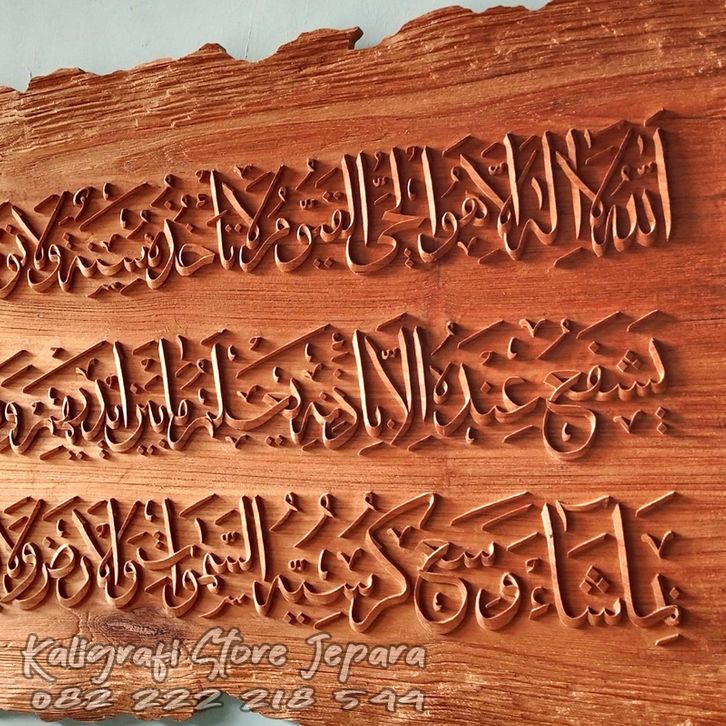 اَللّٰهُ لَا اِلٰهَ اِلَّا هُوَ الْحَيُّ الْقَيُّوْمُ لَا تَأْخُذُهُ سِنَةٌ وَلَا
يَشْفَعُ عِنْدَهُ اِلَّا بِاِذْنِهِ يَعْلَمُ مَا بَيْنَ اَيْدِيْهِمْ وَ
بِمَا شَاءَ وَسِعَ كُرْسِيُّهُ السَّمٰوَاتِ وَالْاَرْضَ وَلَا
Kaligrafi Store Jepara
082 222 218 544